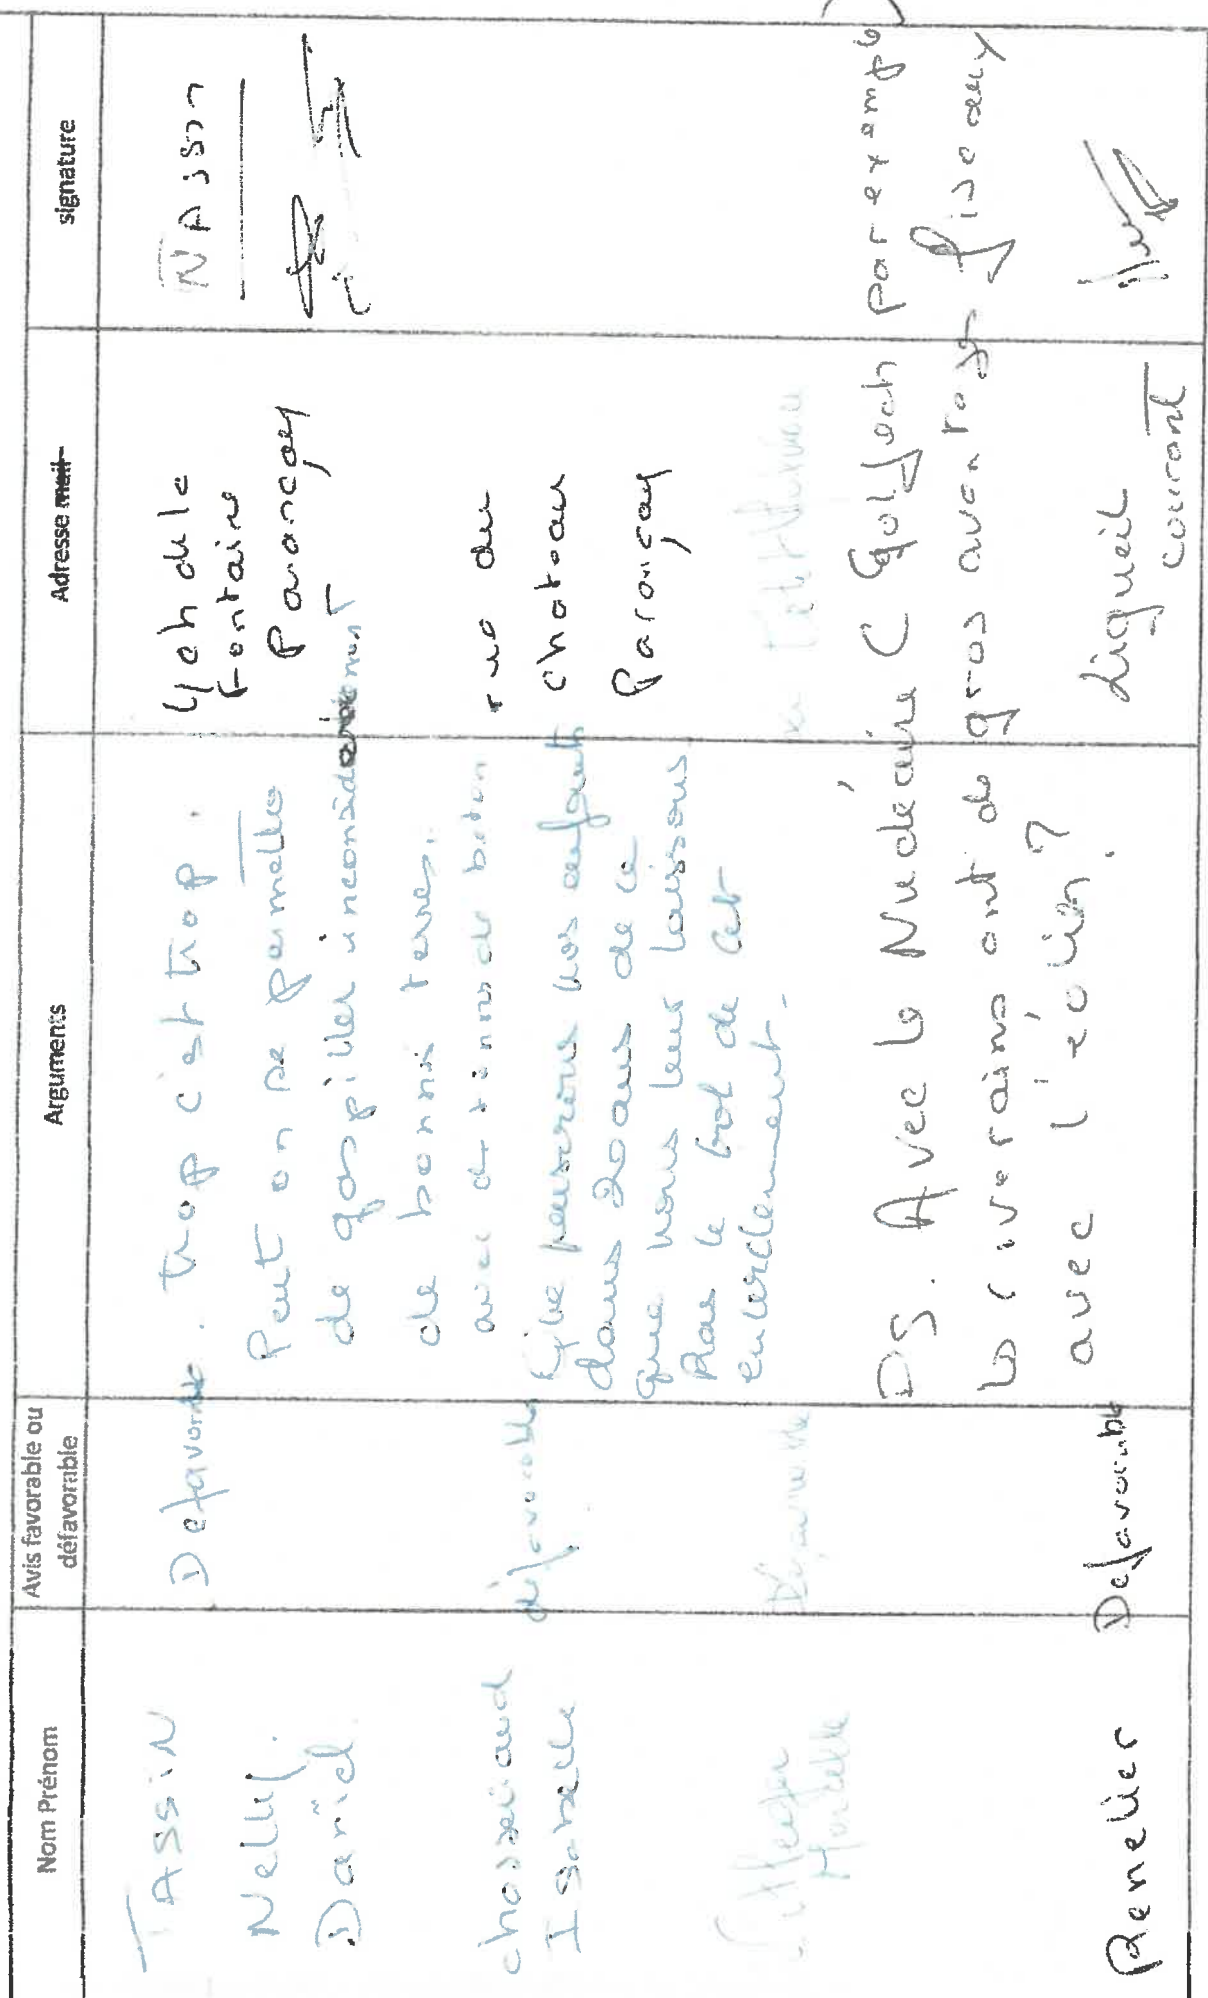 Nom Prénom
Avis favorable ou
défavorable
Arguments
Adresse mail
signature
TASSIN
Nelly.
Daniel
Defavorable
. Trop c'est trop.
Peut on se permettre
de gaspiller inconsidérément
de bonnes terres.
avec des tonnes de béton
4 ch de la
Fontaine
Parançay
chasseriaud
Isabelle
défavorable
Que penserons nos enfants
dans 20 ans de ce
que nous leur laissons
Ras le bol de cet
encerclement.
rue du
chateau
Parançay
Défavorable
PS. Avec le Nucléaire (Golfech par exemple)
les riverains ont de gros avantages fiscaux
avec l'éolien?
Renelier
Defavorable
Ligueil
courant